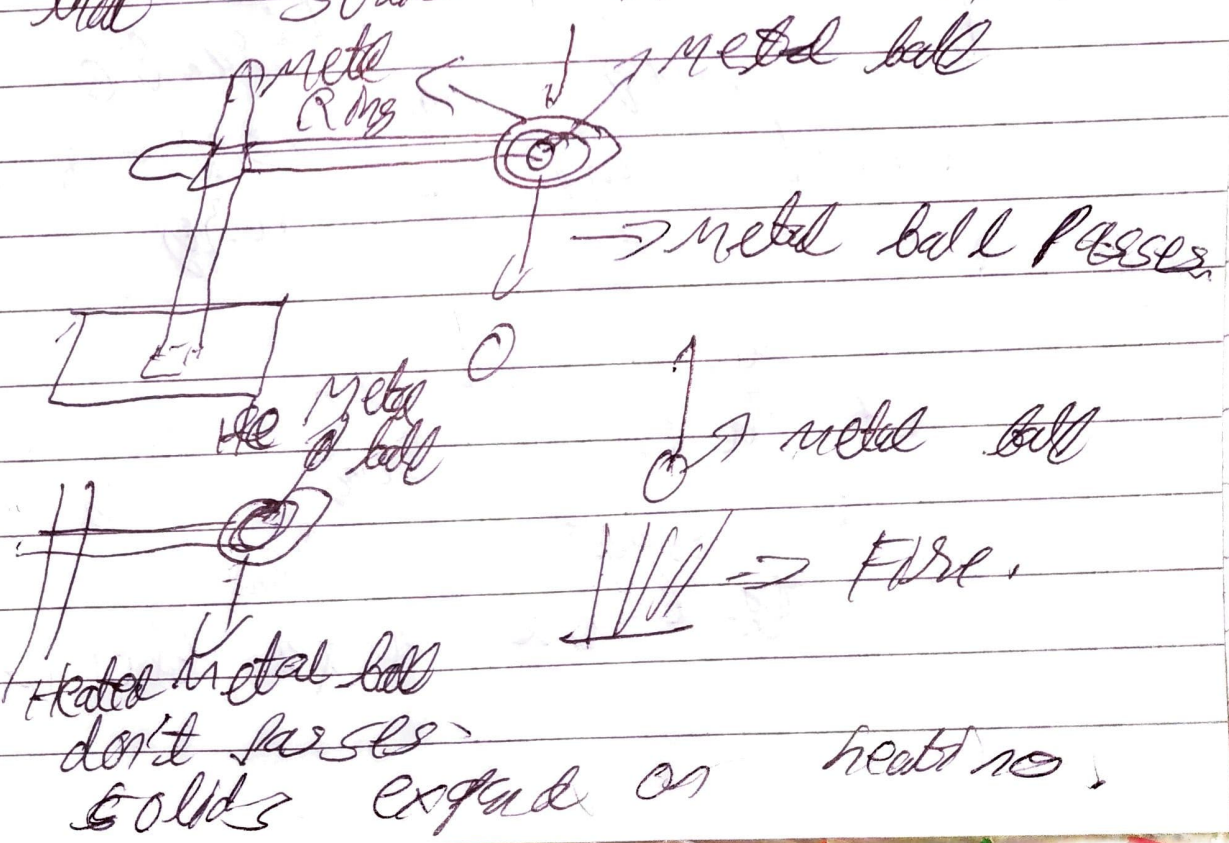 that
Metal
Ring
Metal ball
Metal ball Passes
Metal
ball
metal ball
Fire.
Heated Metal ball
don't Passes
solids expand on heating.